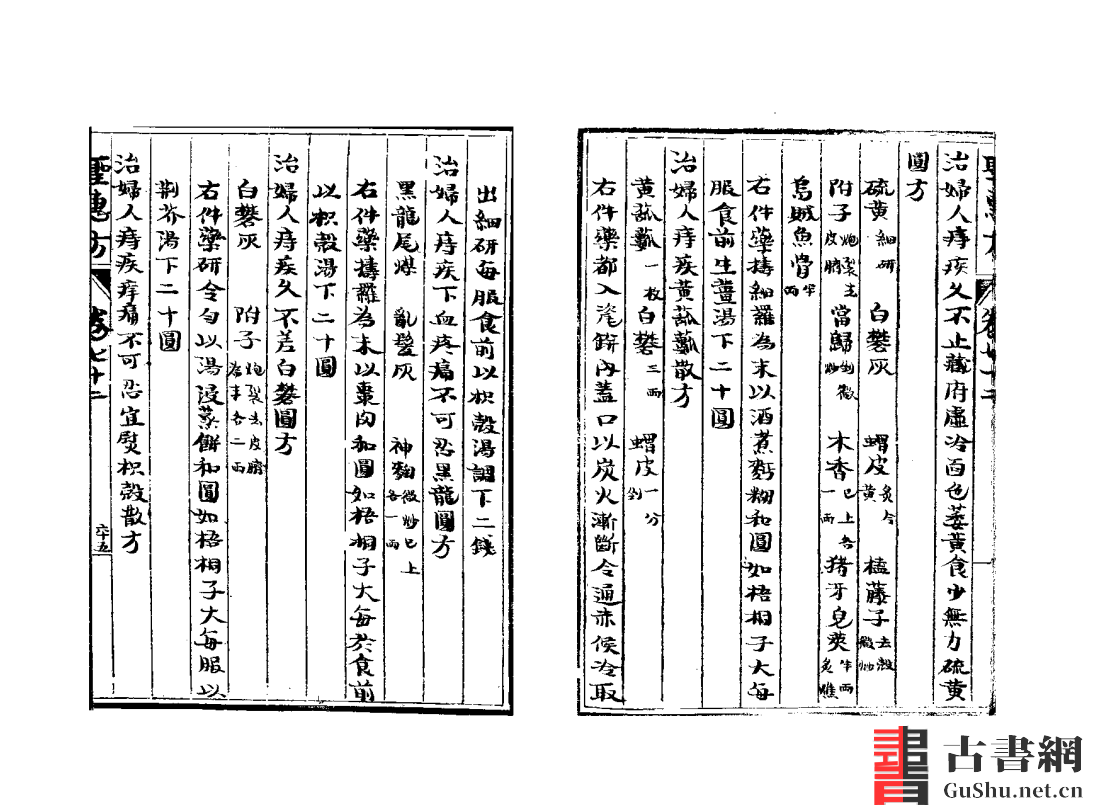 治婦人痔疾久不止藏府虛冷面色萎黃食少無力硫黃
圓方
硫黃細研 白礬灰 蝟皮炙令黃 榼藤子去殼微炒
附子炮裂去皮臍 當歸剉微炒 木香已上各一兩 猪牙皂莢半兩炙燋
烏賊魚骨半兩
右件藥擣細羅為末以酒煮麪糊和圓如梧桐子大每
服食前生薑湯下二十圓
治婦人痔疾黃蓏瓤散方
黃蓏瓤一枚 白礬三兩 蝟皮一分剉
右件藥都入瓷缾內蓋口以炭火漸斷令通赤候冷取
出細研每服食前以枳殼湯調下二錢
治婦人痔疾下血疼痛不可忍黑龍圓方
黑龍尾煤 亂髮灰 神麴微炒已上各一兩
右件藥擣羅為末以棗肉和圓如梧桐子大每於食前
以枳殼湯下二十圓
治婦人痔疾久不差白礬圓方
白礬灰 附子炮裂去皮臍
右件藥研令勻以湯浸蒸餅和圓如梧桐子大每服以
荆芥湯下二十圓
治婦人痔疾痒痛不可忍宜熨枳殼散方
聖惠方 卷七十二 六十五
古書網
GuShu.net.cn